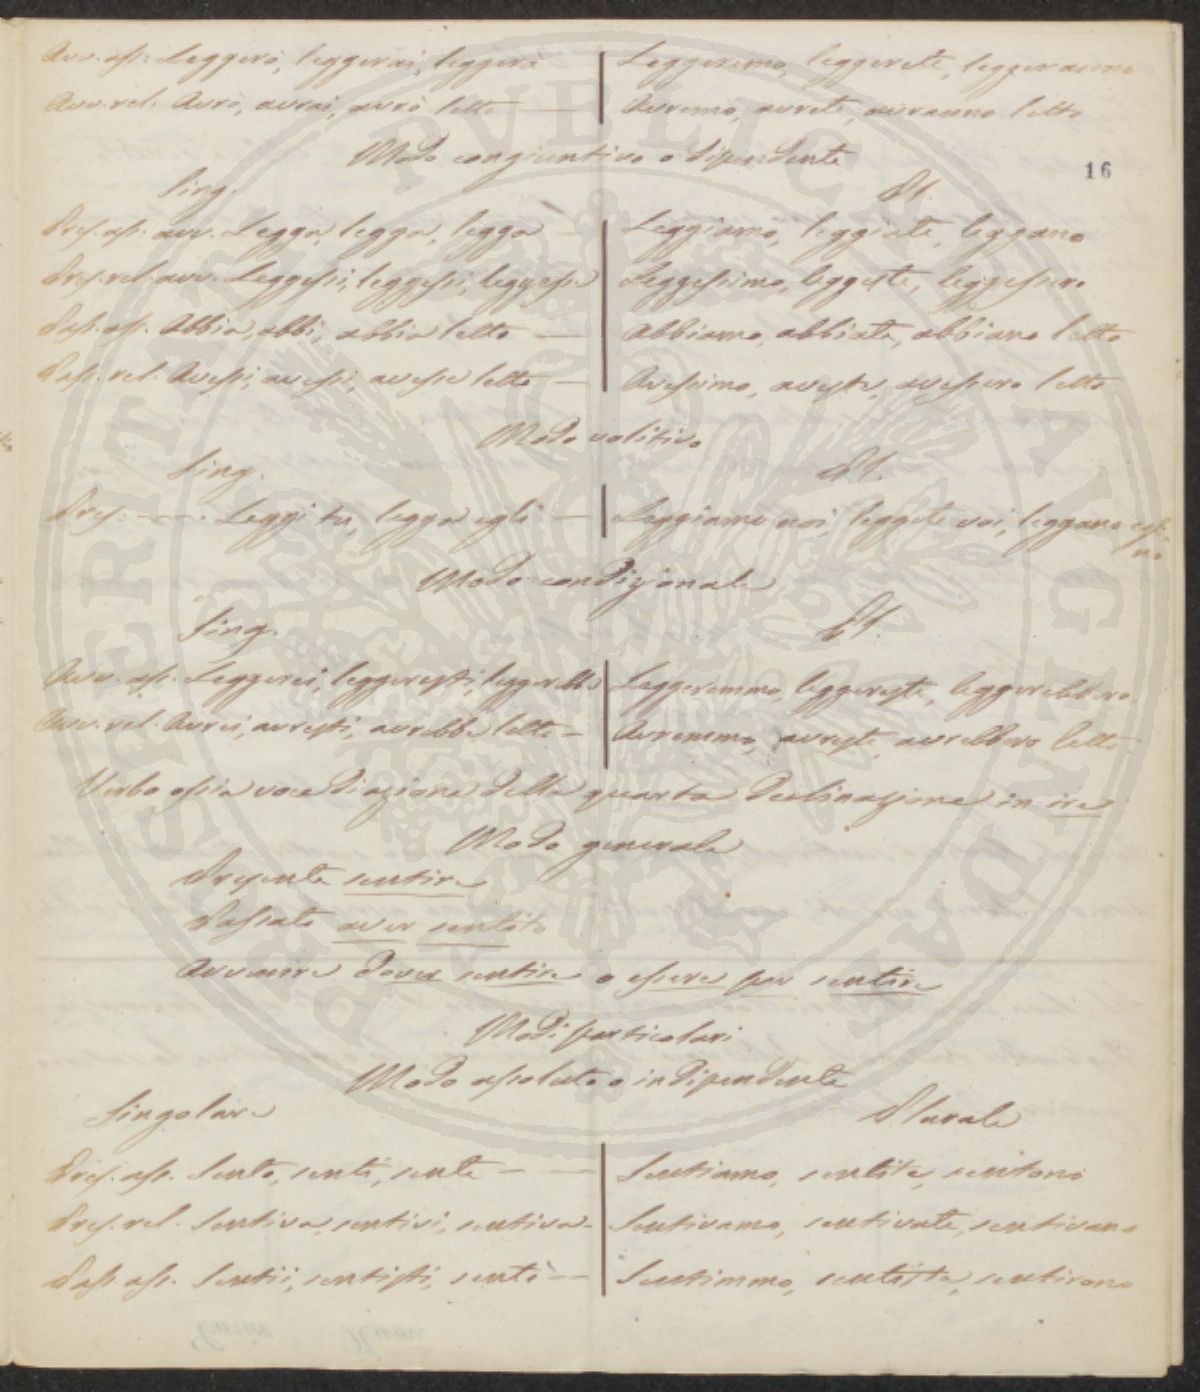 Avv. ass. Leggerò, leggerai, leggerà — Leggeremo, leggerete, leggeranno
Avv. rel. Avrò, avrai, avrà letto — Avremo, avrete, avranno letto
Modo congiuntivo o dipendente
16
Sing. Pl.
Pres. ass. avv. Legga, legga, legga — Leggiamo, leggiate, leggano
Pres. rel. avv. Leggessi, leggessi, leggesse Leggessimo, leggeste, leggessero
Pass. ass. Abbia, abbi, abbia letto — Abbiamo, abbiate, abbiano letto
Pass. rel. Avessi, avessi, avesse letto — Avessimo, aveste, avessero letto
Modo volitivo
Sing. Pl.
Pres. — Leggi tu, legga egli — Leggiamo noi, leggete voi, leggano egli-
no
Modo condizionale
Sing. Pl.
Avv. ass. Leggerei, leggeresti, leggerebbe Leggeremmo, leggereste, leggerebbero
Avv. rel. Avrei, avresti, avrebbe letto — Avremmo, avreste, avrebbero letto
Verbo ossia voce di azione della quarta declinazione in ire
Modo generale
Presente sentire
Passato aver sentito
Avvenire dover sentire o essere per sentire
Modi particolari
Modo assoluto o indipendente
Singolare Plurale
Pres. ass. Sento, senti, sente — — Sentiamo, sentite, sentono
Pres. rel. Sentiva, sentivi, sentiva — Sentivamo, sentivate, sentivano
Pass. ass. Sentii, sentisti, sentì — Sentimmo, sentiste, sentirono
SALVS PVBLICA
PERITAS